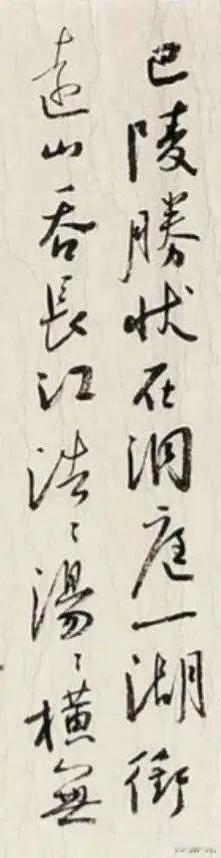 巴陵勝狀在洞庭一湖銜
遠山吞長江浩々湯々橫無